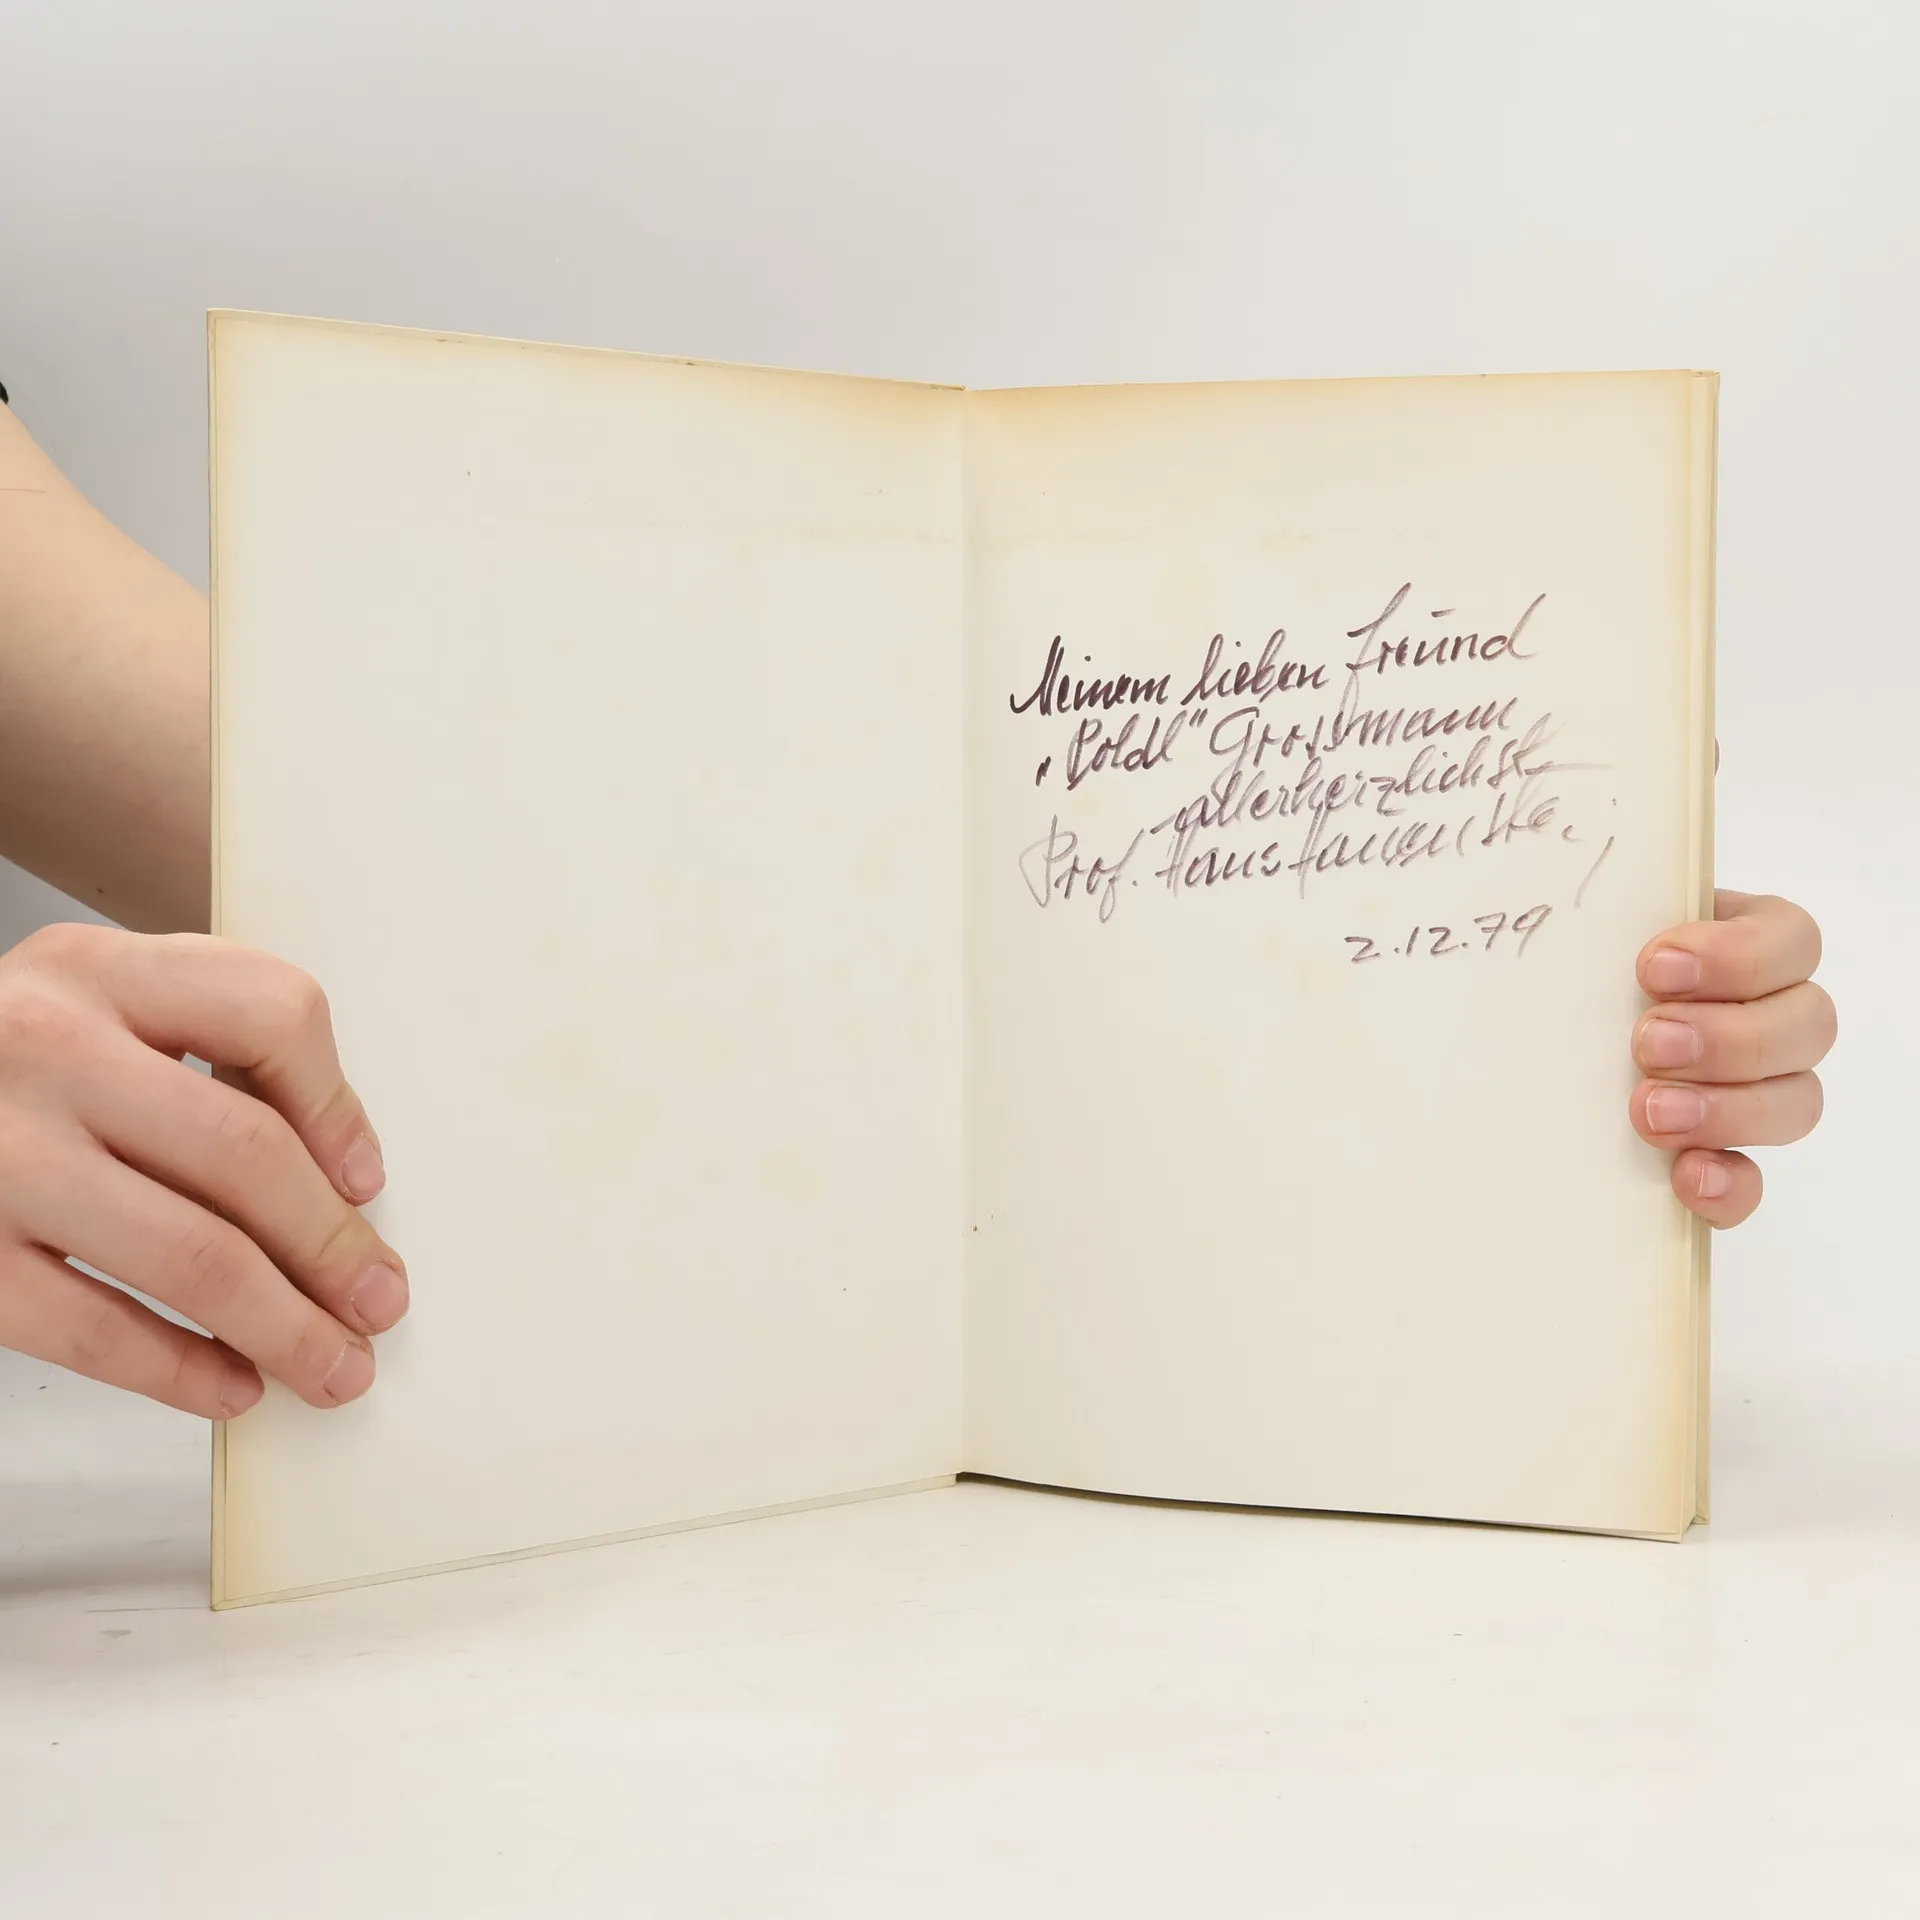 Meinem lieben Freund
„Poldl" Grossmann
allerherzlichst
Prof. Hans
2.12.79